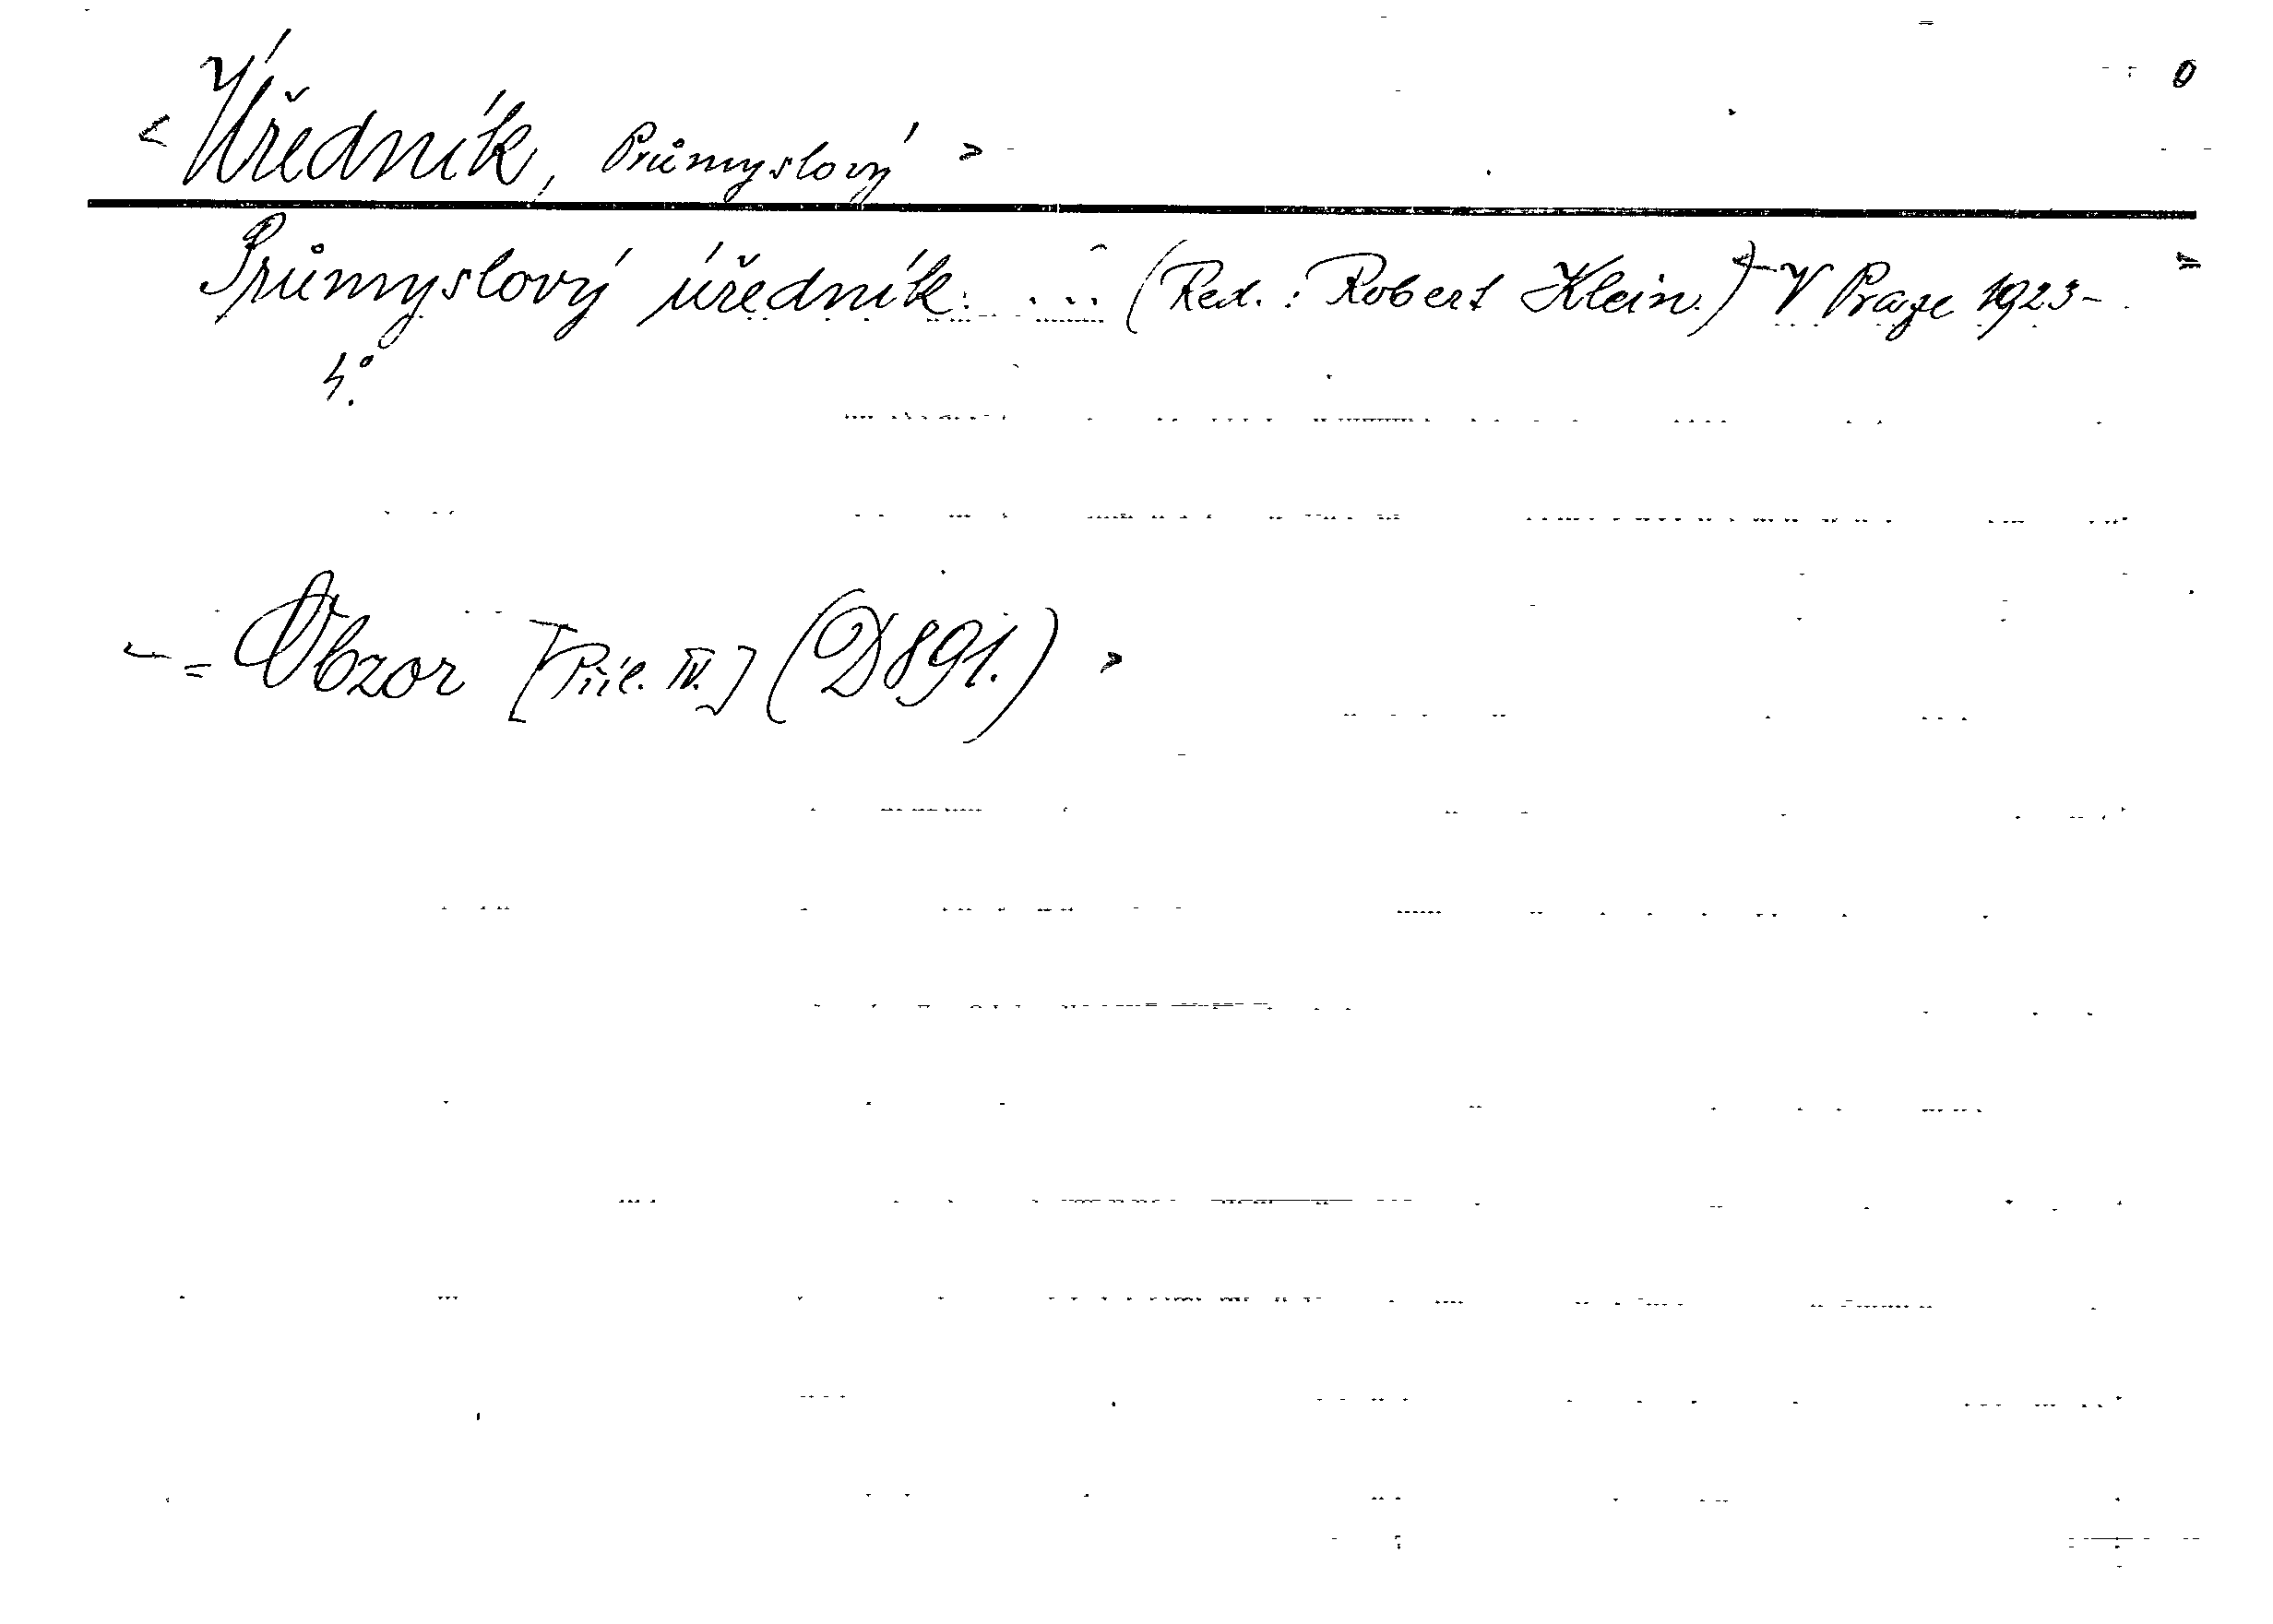 < Úředník, Průmyslový >
Průmyslový úředník. ... (Red.: Robert Klein.) V Praze 1923-
4°.
= Obzor [Příl. IV.] (D 891.) >